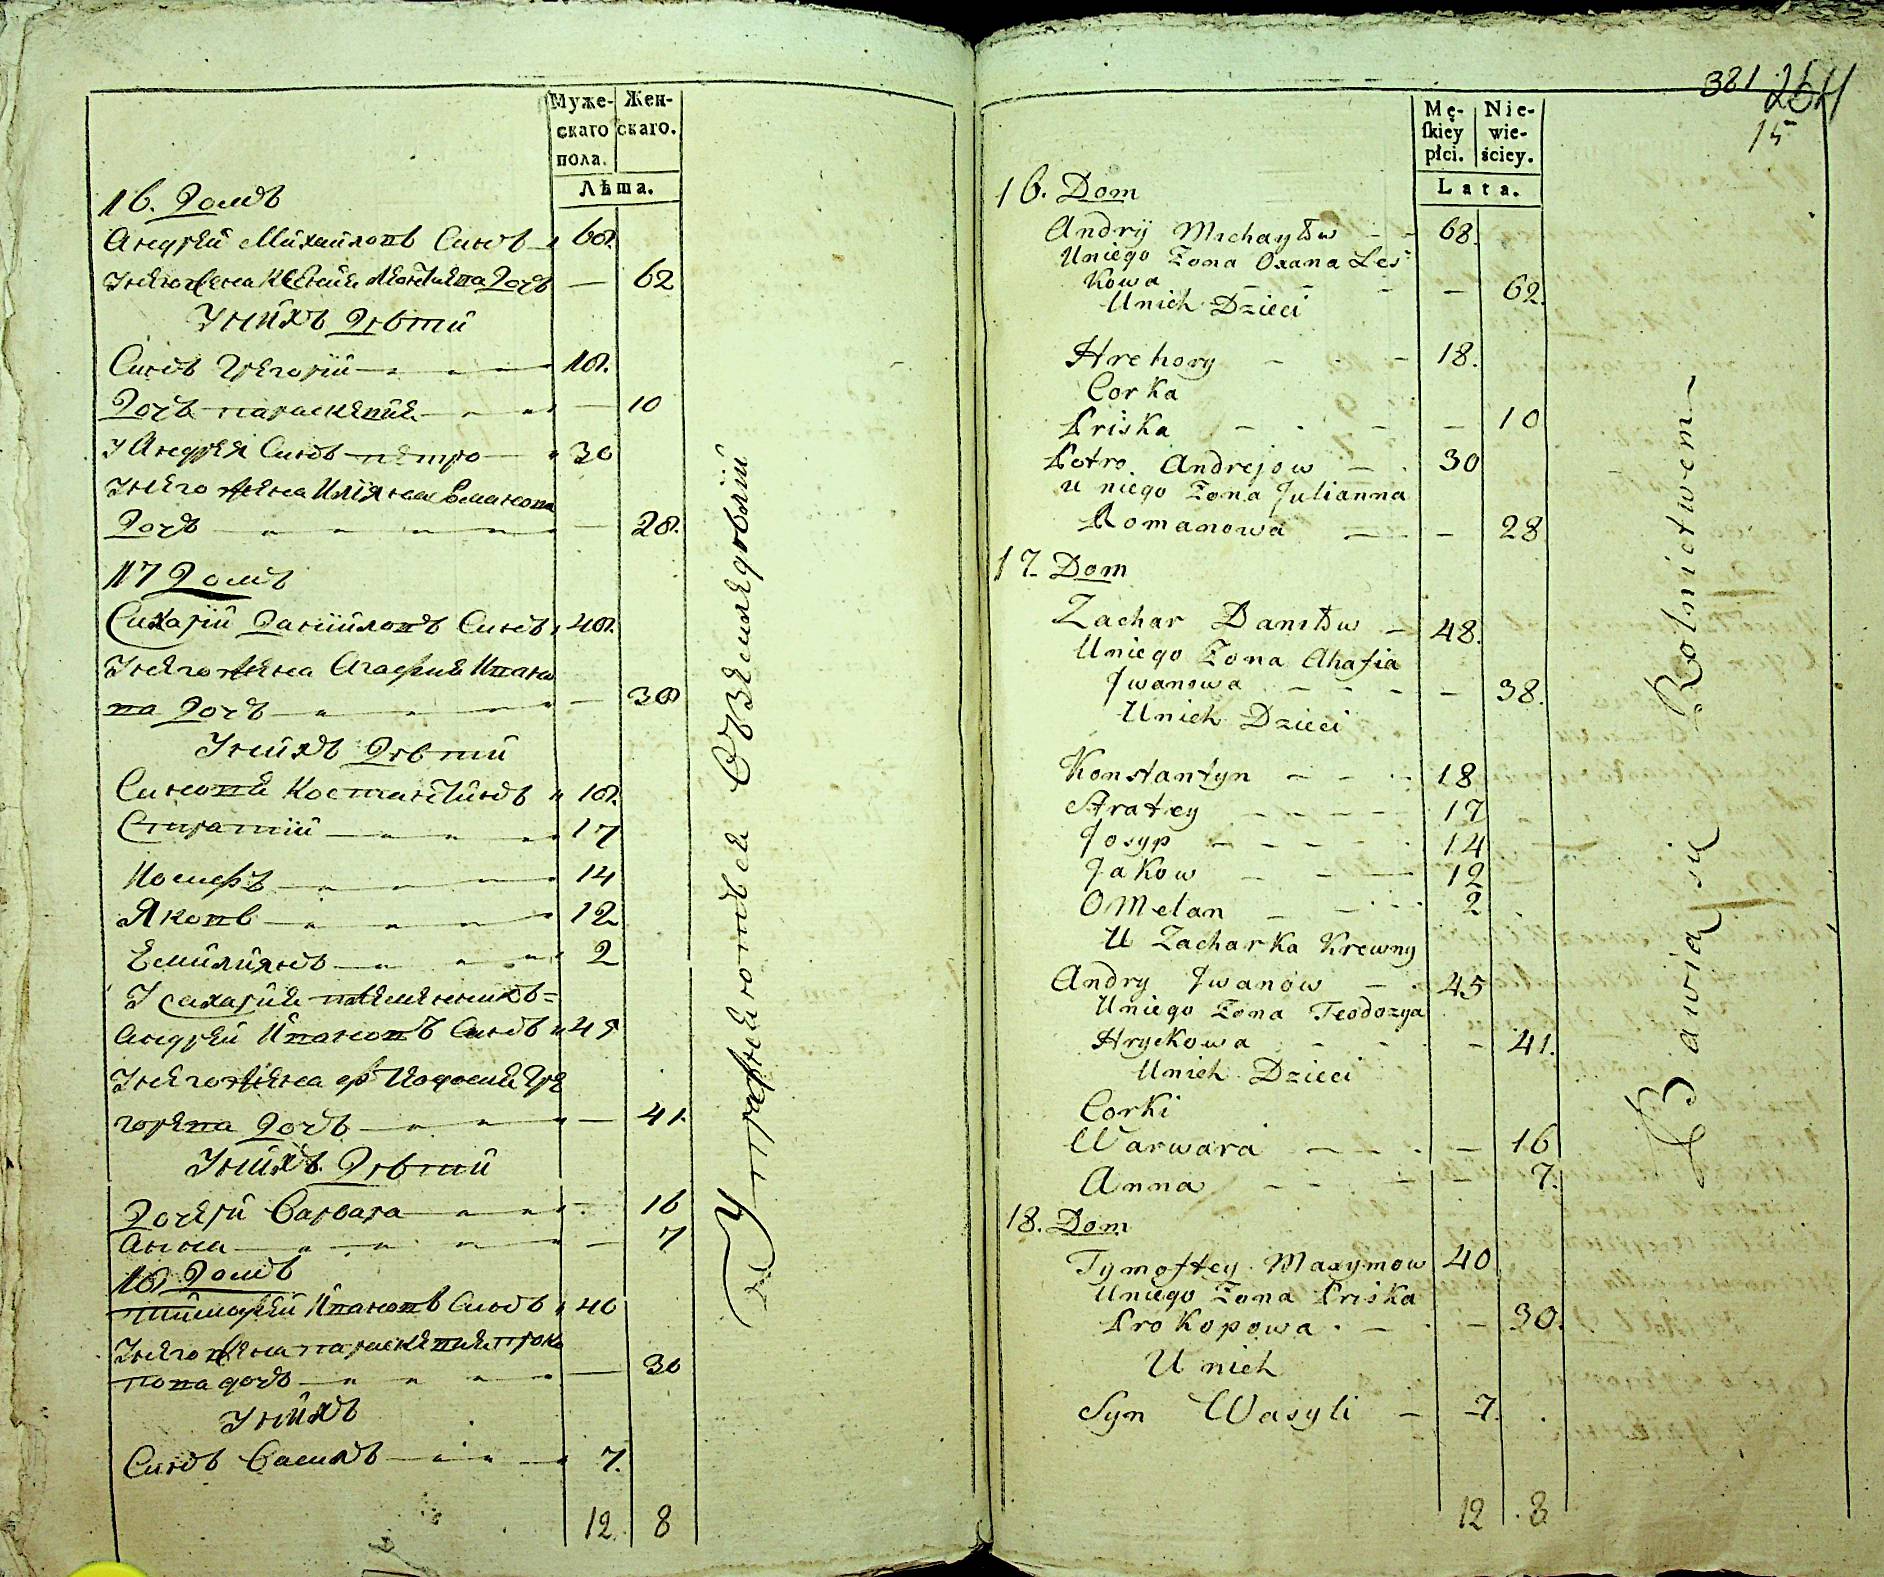 Муже-
скаго
пола.
Жен-
скаго.
Лѣта.
16. Домъ
Андрей Михайловъ Синъ 68.
У него жена Ксения Леонтиева Дочь — 62
У нихъ Дѣти
Синъ Григорий 18.
Дочь параскевия — 10
У Андрея Синъ петро 30
У него жена Улияна Романова
Дочь — 28.
17 Домъ
Сахарий Даниловъ Синъ 48.
У него жена Агафия Ивано
ва Дочь — 38
У нихъ Дѣти
Синови Костантинъ 18.
Стратий 17
Иосифъ 14
Яковъ 12
Емилиянъ 2
У Сахария племенникъ=
Андрей Ивановъ Синъ 45
У него жена Феодосия Гри
горева Дочь — 41.
У нихъ Дѣти
Дочери Варвара 16
Анна — 7
18 Домъ
тимофей Ивановъ Синъ 40
У него жена параскевия проко
пова дочь — 30
У нихъ
Синъ Василь 7.
12. 8
Упражняются въ земледѣлии
381 264
15
Mę-
skiey
płci.
Nie-
wie-
ściey.
Lata.
16. Dom
Andrÿ Michayłow 68.
U niego Zona Oxana Les
kowa — 62.
U nich Dzieci
Hrehory — 18.
Corka
Priska — 10
Petro Andrejow — 30
u niego Zona Julianna
Romanowa — 28
17. Dom
Zachar Daniłow — 48.
U niego Zona Ahafia
Jwanowa — 38.
U nich Dzieci
Konstantyn — 18
Stratey — 17
Josyp — 14
Jakow — 12
OMelan — 2
U Zacharka Krewny
Andry Jwanów — 45
U niego Zona Teodozya
Hryckowa — 41.
U nich Dzieci
Corki
Warwara — 16
Anna — 7.
18. Dom
Tymoftey Maxymow 40
U niego Zona Priska
Prokopowa — 30.
U nich
Syn Wasyli — 7.
12 8
Bawią się Rolnictwem